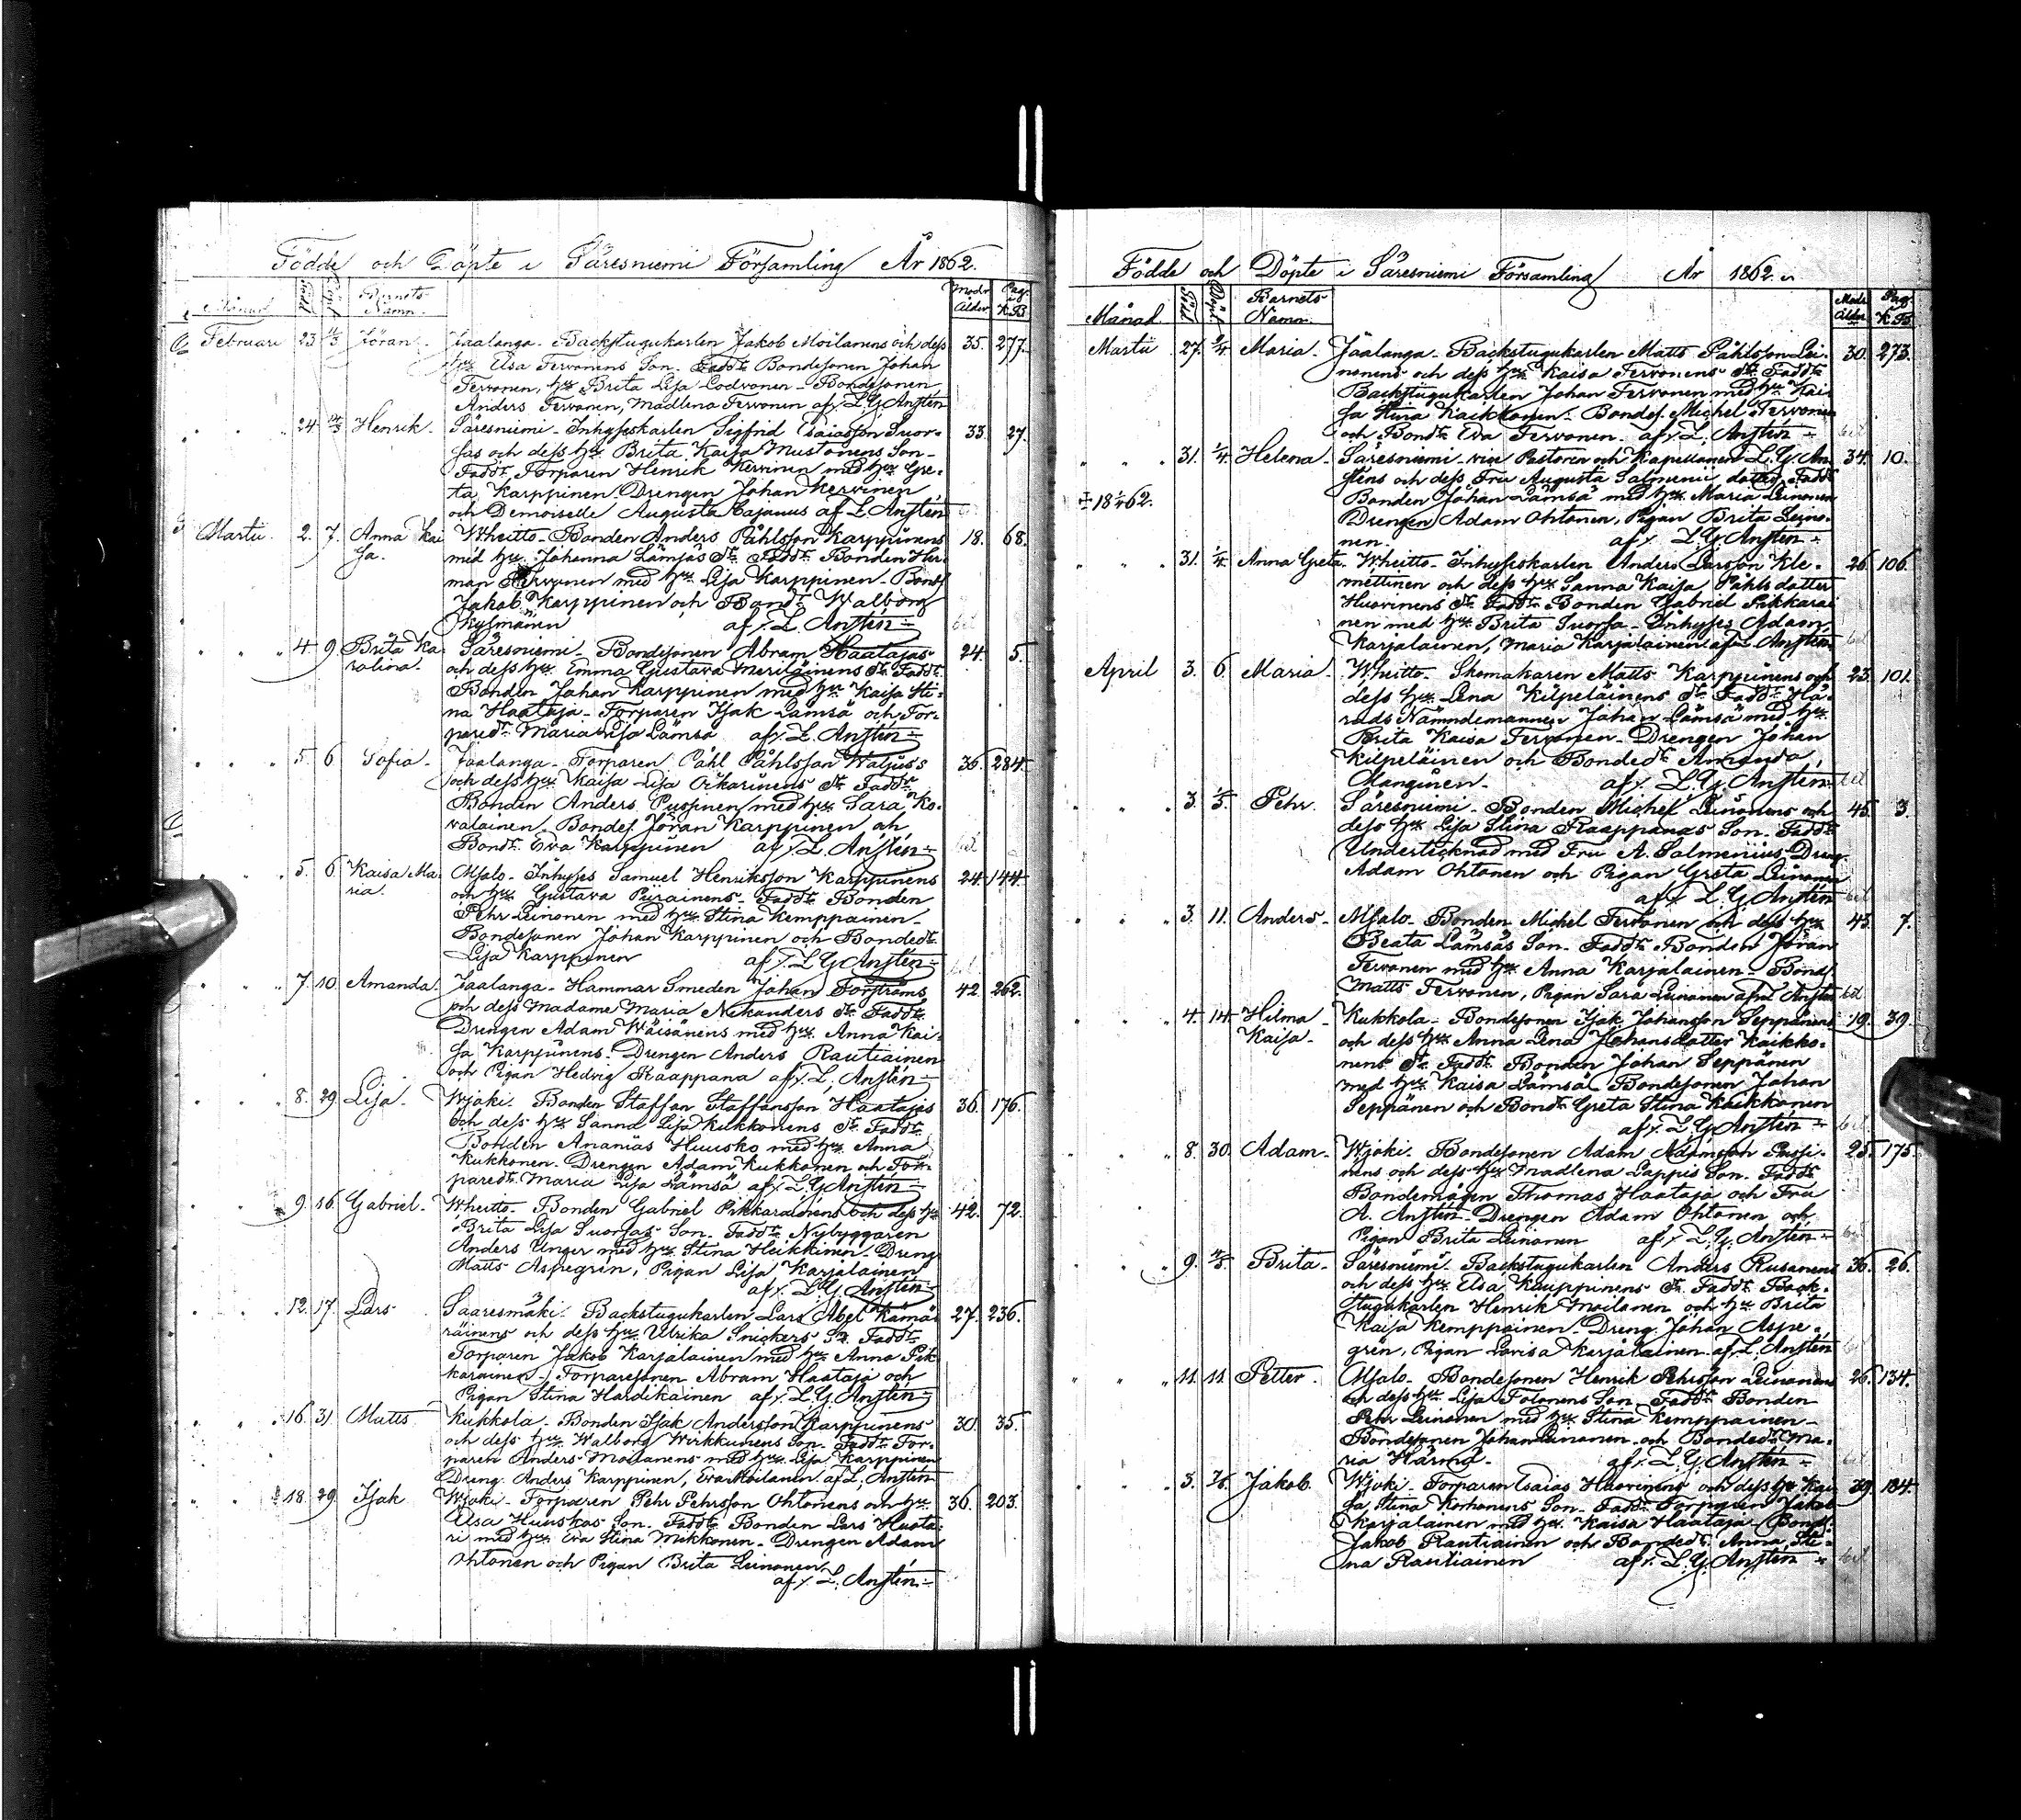 Födde och Döpte i Säresniemi Församling År 1862.
Månad Född Döpt Barnets Namn. Modr. Ålder Pag. i K.B.
Februari 23 Jöran. Jaalanga. Backstugukarlen Jakob Moilanens och dess 35. 277.
hu Elsa Tervonens Son. Faddr Bondesonen Johan
Tervonen, hu Brita Lisa Lodvonen. Bondesonen
Anders Tervonen, Madlena Tervonen af L. G. Anstén
24 Henrik. Säresniemi. Inhyseskarlen Sigfrid Esaiasson Suor- 33. 27.
sas och dess hu Brita Kaisa Mustonens Son.
Faddr Torparen Henrik Kervinen med hu Gre-
ta Karppinen. Drengen Johan Kervinen
och Demoiselle Augusta Cajanus af L. Anstén
Martii 2. 7. Anna Kai Wheitto. Bonden Anders Påhlsson Karppinens 18. 68.
sa. med hu Johanna Lämsäs Dr Faddr Bonden Her-
man Tervonen med hu Lisa Karppinen. Bonds
Jakob Karppinen och Bondr Walborg
af L. Anstén
4 9 Brita Ka- Säresniemi. Bondesonen Abram Haatajas 24. 5.
rolina. och dess hu Emma Gustava Meriläinens Dr Faddr
Bonden Johan Karppinen med hu Kaisa Sti-
na Haataja. Torparen Isak Lämsä och Tor-
paredr Maria Lisa Lämsä af L. Anstén
5. 6 Sofia. Jaalanga. Torparen Påhl Påhlsson Waljus's 36. 284.
och dess hu Kaisa Lisa Oikarinens Dr Faddr
Bonden Anders Pussinen med hu Sara Ko-
valainen. Bondes. Jöran Karppinen och
Bondr Eva Karppinen af L. Anstén
5. 6 Kaisa Ma- Alsalo. Inhyses Samuel Henriksson Karppinens 24. 144.
ria. och hu Gustava Piirainens. Faddr Bonden
Pehr Leinonen med hu Stina Kemppainen.
Bondesonen Johan Karppinen och Bondedr
Lisa Karppinen af L. G. Anstén
7. 10. Amanda. Jaalanga. Hammar Smeden Johan Forströms 42. 262.
och dess Madame Maria Nekanders Dr Faddr
Drengen Adam Wäisänens med hu Anna Kai-
sa Karppinens. Drengen Anders Rautiainen
och Pigan Hedvig Kaappana af L. Anstén
8. 29 Lisa. Wjoki. Bonden Staffan Staffansson Haatajas 36. 176.
och dess hu Sanna Lisa Kukkonens Dr Faddr
Bonden Ananias Huusko med hu Anna
Kukkonen. Drengen Adam Kukkonen och Tor-
paredr Maria Lisa Lämsä af L. G. Anstén
9. 16. Gabriel. Wheitto. Bonden Gabriel Pikkarainens och dess hu 42. 72.
Brita Lisa Suorsas Son. Faddr Nybyggaren
Anders Unger med hu Stina Heikkinen. Dreng
Matts Aspegren, Pigan Lisa Karjalainen
af L. G. Anstén
12. 17. Lars Saaresmäki. Backstugukarlen Lars Abel Kämä 27. 236.
räinens och dess hu Ulrika Snickers Sn Faddr
Torparen Jakob Karjalainen med hu Anna Pik
karainen. Torparesonen Abram Haataja och
Pigan Stina Hardikainen af L. G. Anstén
16. 31. Matts Kukkola. Bonden Isak Andersson Karppinens 30. 35.
och dess hu Walborg Wirkkunens Son. Faddr Tor-
paren Anders Moilanens med hu Lisa Karppinen
Dreng Anders Karppinen, Eva Moilanen af L. Anstén
18. 29. Isak Wjoki. Torparen Pehr Pehrsson Ohtonens och hu 36. 203.
Elsa Huuskos Son. Faddr Bonden Lars Huota-
ri med hu Eva Stina Mikkonen. Drengen Adam
Ohtonen och Pigan Brita Leinonen
af L. Anstén
Födde och Döpte i Säresniemi Församling År 1862.
Månad Född Döpt Barnets Namn. Modr. Ålder Pag. K.B.
Martii 27. Maria. Jaalanga. Backstugukarlen Matts Påhlsson Lei- 30. 273.
nonens och dess hu Kaisa Tervonens Dr Faddr
Backstugukarlen Johan Tervonen med hu Kai
sa Stina Kaikkonen. Bondes. Michel Tervonen
och Bondr Eva Tervonen. af L. Anstén
31. Helena. Säresniemi. Pastoren och Kapellanen L. G. An- 34. 10.
sténs och dess Fru Augusta Salmenii dotter. Faddr
62. Bonden Johan Lämsä med hu Maria Leinonen
Drengen Adam Ohtonen, Pigan Brita Leino-
nen. af L. G. Anstén
31. Anna Greta. Wheitto. Inhyseskarlen Anders Larsson Kle- 26. 106.
mettinen och dess hu Sanna Kaisa Påhlsdotter
Huovinens Dr Faddr Bonden Gabriel Pikkarai
nen med hu Brita Suorsa. Inhyses Adam
Karjalainen, Maria Karjalainen af L. Anstén
April 3. 6. Maria. Wheitto. Skomakaren Matts Karppinens och 23. 101.
dess hu Lena Kilpeläinens Dr Faddr Hä-
rads Nämndemannen Johan Lämsä med hu
Brita Kaisa Tervonen. Drengen Johan
Kilpeläinen och Bondedr Amanda
Manginen. af L. G. Anstén
3. Pehr. Säresniemi. Bonden Michel Leinonens och 45. 3.
dess hu Lisa Stina Raappanas Son. Faddr
Undertecknad med Fru A. Salmenius Dreng
Adam Ohtonen och Pigan Greta Leinonen
af L. G. Anstén
3. 11. Anders. Alsalo. Bonden Michel Tervonen och dess hu 43. 7.
Beata Lämsäs Son. Faddr Bonden Jöran
Tervonen med hu Anna Karjalainen. Bonds
Matts Tervonen, Pigan Sara Leinonen af L. Anstén
4. 14. Hilma Kukkola. Bondesonen Isak Johansson Seppänens 19. 39.
Kaisa. och dess hu Anna Lena Johansdotter Kaikko-
nens Dr Faddr Bonden Johan Seppänen
med hu Kaisa Lämsä. Bondesonen Johan
Seppänen och Bondr Greta Stina Kaikkonen
af L. G. Anstén
8. 30. Adam. Wjoki. Bondesonen Adam Adamsson Pussi- 25. 175.
nens och dess hu Madlena Lappis Son. Faddr
Bondemågen Thomas Haataja och Fru
A. Anstén. Drengen Adam Ohtonen och
Pigan Brita Leinonen af L. G. Anstén
9. Brita. Säresniemi. Backstugukarlen Anders Rusanens 36. 26.
och dess hu Elsa Kauppinens Dr Faddr Back-
stugukarlen Henrik Moilanen och hu Brita
Kaisa Kemppainen. Dreng Johan Aspe-
grén, Pigan Lovisa Karjalainen. af L. Anstén
11. 11. Petter. Alsalo. Bondesonen Henrik Pehrsson Leinonens 26. 134.
och dess hu Lisa Tolonens Son. Faddr Bonden
Pehr Leinonen med hu Stina Kemppainen.
Bondesonen Johan Leinonen och Bondedr Ma-
ria Härmä. af L. G. Anstén
3. Jakob. Wjoki. Torparen Esaias Huovinens och dess hu Kai 39. 184.
sa Stina Korhonens Son. Faddr Torparen Jakob
Karjalainen med hu Kaisa Haataja. Bonds
Jakob Rautiainen och Bondedr Anna Sti-
na Rautiainen af L. G. Anstén